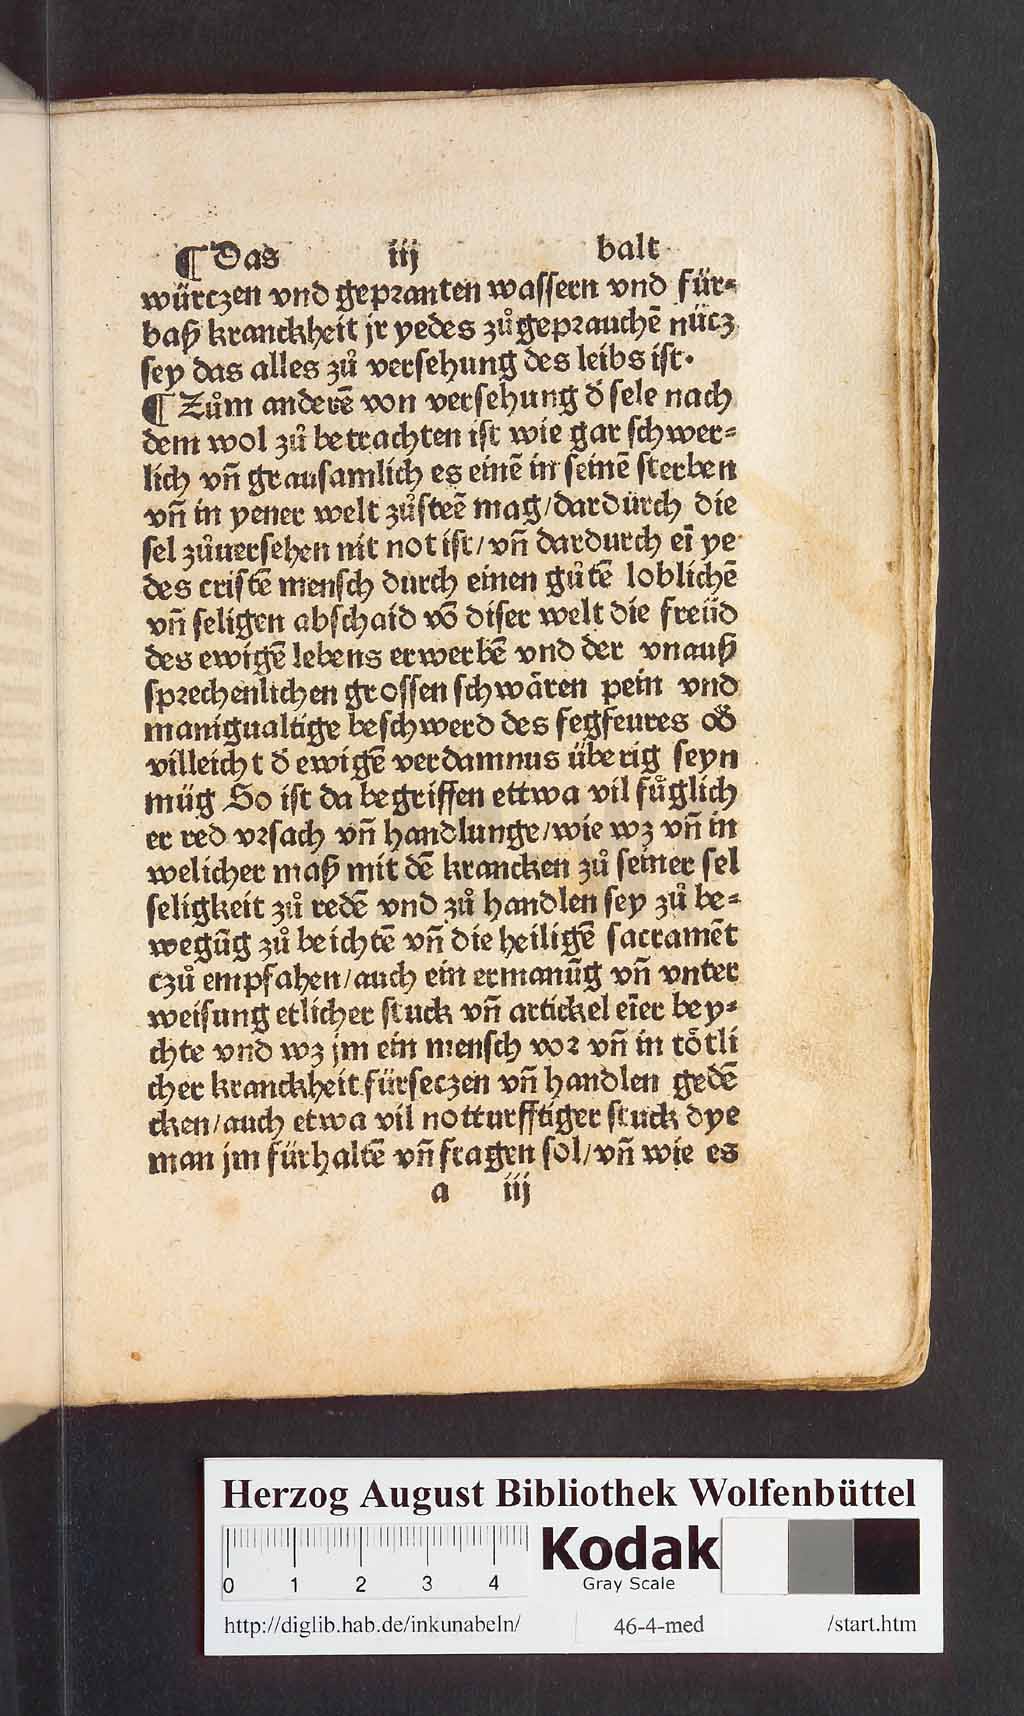 ¶ Das iij balt
würczen vnd gepꝛanten waſſern vnd für⸗
baß kranckheit jr yedes zůgepꝛauchē nücz
ſey das alles zů verſehung des leibs iſt.
¶ Zům anderē von verſehung đ ſele nach
dem wol zů betrachten iſt wie gar ſchwer⸗
lich vn̄ grauſamlich es einē in ſeinē ſterben
vn̄ in yener welt zůſteē mag/dardurch die
ſel zůuerſehen nit not iſt/vn̄ dardurch eī ye
des criſtē menſch durch einen gůtē loblichē
vn̄ ſeligen abſchaid vō diſer welt die freüd
des ewigē lebens erwerbē vnd der vnauß
ſpꝛechenlichen groſſen ſchwären pein vnd
manigualtige beſchwerd des fegfeures ođ
villeicht đ ewigē verdamnus überig ſeyn
müg So iſt da begriffen ettwa vil fůglich
er red vꝛſach vn̄ handlunge/wie wz vn̄ in
welicher maß mit dē krancken zů ſeiner ſel
ſeligkeit zů redē vnd zů handlen ſey zů be⸗
wegūg zů beichtē vn̄ die heiligē ſacramēt
czů empfahen/auch ein ermanūg vn̄ vnter
weiſung etlicher ſtuck vn̄ artickel eīer bey⸗
chte vnd wz jm ein menſch voꝛ vn̄ in tötli
cher kranckheit fürſeczen vn̄ handlen gedē
cken/auch etwa vil notturfftiger ſtuck dye
man jm fürhaltē vn̄ fragen ſol/vn̄ wie es
a iij
Herzog August Bibliothek Wolfenbüttel
0 1 2 3 4
Kodak
Gray Scale
http://diglib.hab.de/inkunabeln/ 46-4-med /start.htm